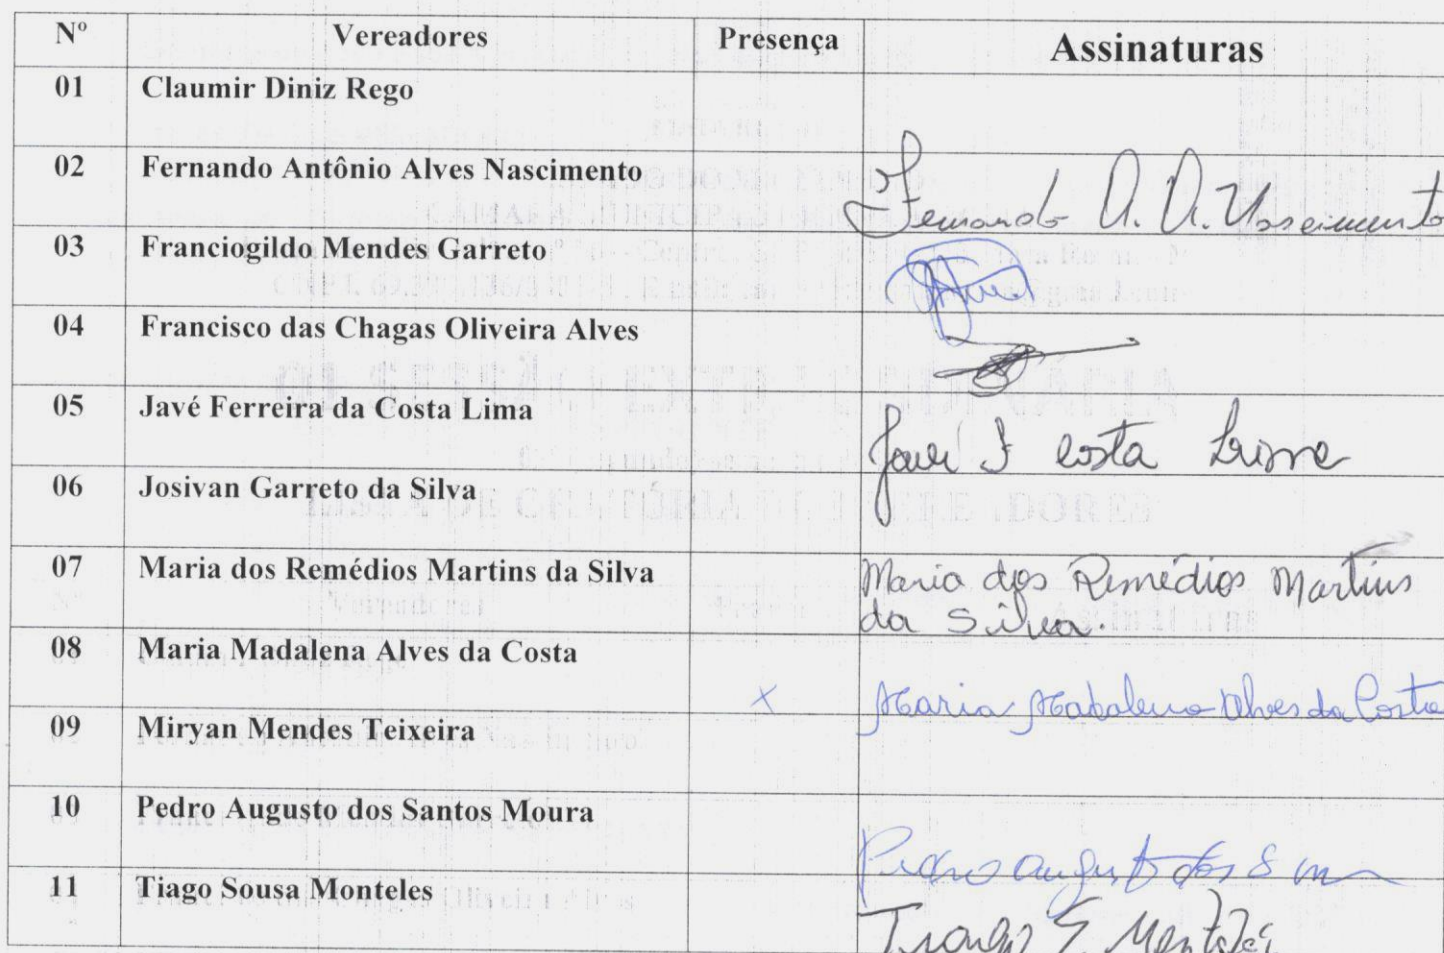 Nº Vereadores Presença Assinaturas
01 Claumir Diniz Rego
02 Fernando Antônio Alves Nascimento Fernando A. A. Nascimento
03 Franciogildo Mendes Garreto
04 Francisco das Chagas Oliveira Alves
05 Javé Ferreira da Costa Lima Javé F Costa Lima
06 Josivan Garreto da Silva
07 Maria dos Remédios Martins da Silva Maria dos Remédios Martins
da Silva.
08 Maria Madalena Alves da Costa X Maria Madalena Alves da Costa
09 Miryan Mendes Teixeira
10 Pedro Augusto dos Santos Moura Pedro Augusto dos S
11 Tiago Sousa Monteles Tiago S. Monteles